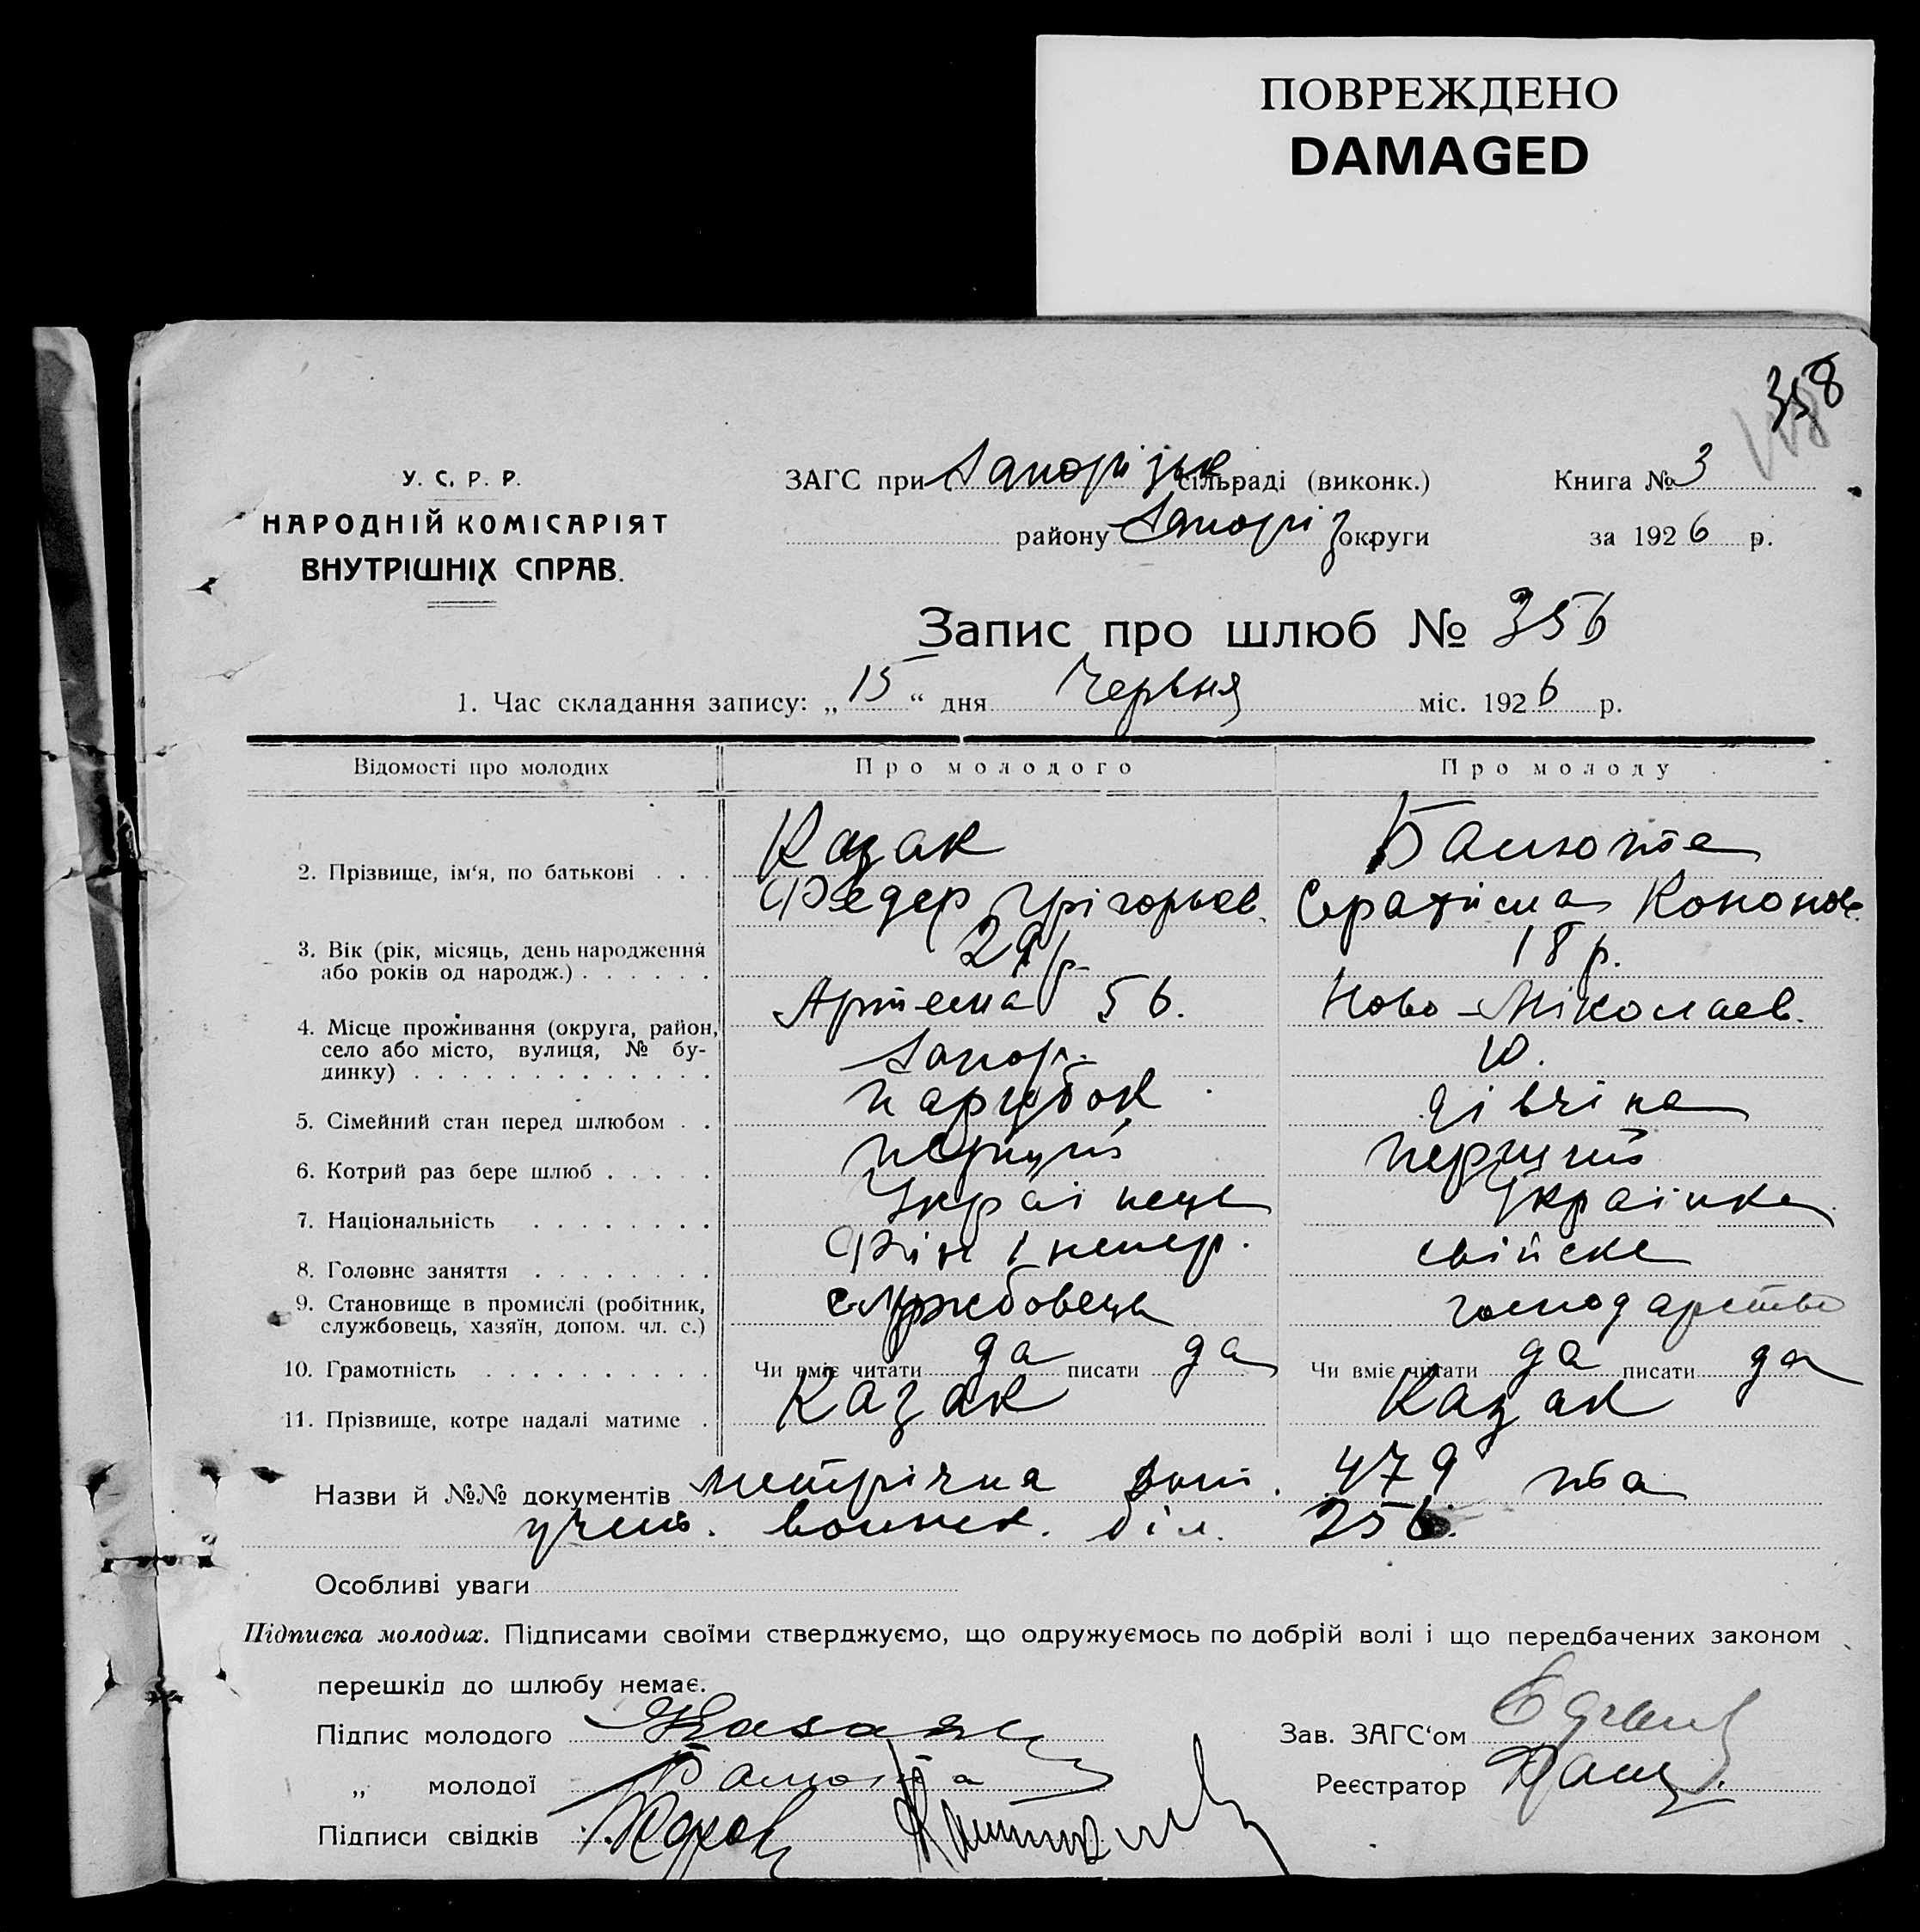 ПОВРЕЖДЕНО
DAMAGED
358
У. С. Р. Р.
НАРОДНІЙ КОМІСАРІЯТ
ВНУТРІШНІХ СПРАВ.
ЗАГС при Запорізьк сільраді (виконк.)
Книга № 3
району Запоріз округи
за 1926 р.
Запис про шлюб № 356
1. Час складання запису: „15“ дня Червня міс. 1926 р.
Відомості про молодих
Про молодого
Про молоду
2. Прізвище, ім‘я, по батькові . . .
Казак
Федер Грігорьев.
Кононов.
3. Вік (рік, місяць, день народження
або років од народж.) . . . . . .
29 р.
18 р.
4. Місце проживання (округа, район,
село або місто, вулиця, № бу-
динку) . . . . . . . . . . . . .
Артема 56.
Запор.
Ново-Міколаев.
10.
5. Сімейний стан перед шлюбом . .
парубок
дівчіна
6. Котрий раз бере шлюб . . . . .
перший
перший
7. Національність . . . . . . . .
Украінець
Украінка
8. Головне заняття . . . . . . . .
Фін
сільске
9. Становище в промислі (робітник,
службовець, хазяїн, допом. чл. с.)
службовець
господарство
10. Грамотність . . . . . . . . . .
Чи вміє читати да писати да
Чи вміє читати да писати да
11. Прізвище, котре надалі матиме .
Казак
Казак
Назви й №№ документів метрічна 479 та
біл. 256.
Особливі уваги
Підписка молодих. Підписами своїми стверджуємо, що одружуємось по добрій волі і що передбачених законом
перешкід до шлюбу немає.
Підпис молодого Казак
Зав. ЗАГС‘ом
„ молодої
Реєстратор
Підписи свідків